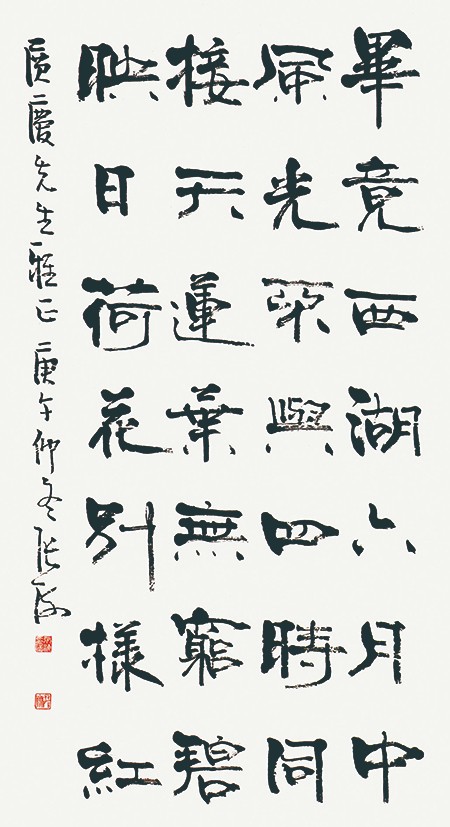 畢竟西湖六月中
風光不與四時同
接天蓮葉無窮碧
映日荷花別樣紅
廣慶先生雅正庚午仲冬張海